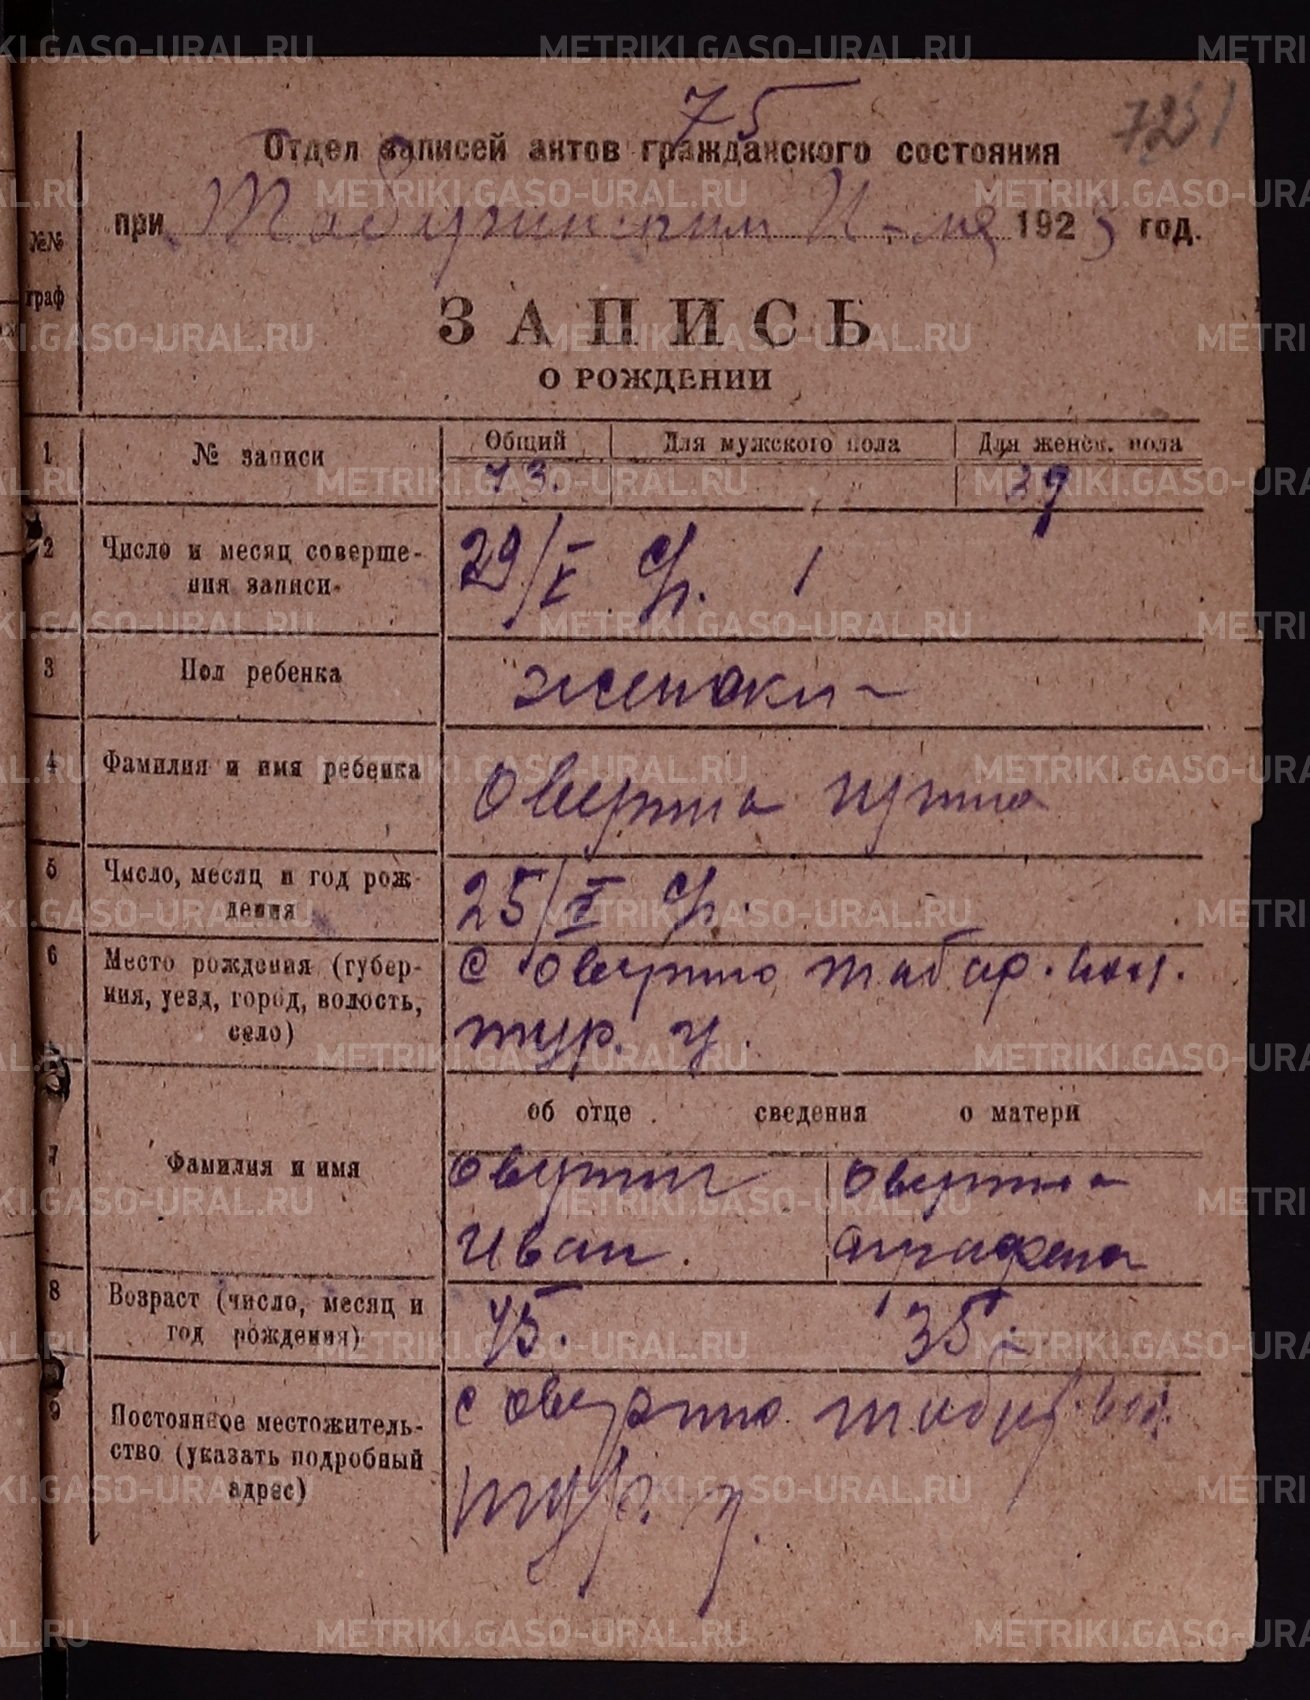 75
7251
Отдел записей актов гражданского состояния
при 192 год.
№№
граф
ЗАПИСЬ
О РОЖДЕНИИ
1 № записи Общий Для мужского пола Для женск. пола
73. 39
2 Число и месяц соверше-
ния записи.
29/X
3 Пол ребенка
женски-
4 Фамилия и имя ребенка
5 Число, месяц и год рож-
дения
25/X
6 Место рождения (губер-
ния, уезд, город, волость,
село)
с Овертино табар. вол.
тур. у.
об отце сведения о матери
7 Фамилия и имя
Иван. Аграфена
8 Возраст (число, месяц и
год рождения)
45. 35.
9 Постоянное местожитель-
ство (указать подробный
адрес)
с Овертино табар. вол.
тур. у.
METRIKI.GASO-URAL.RU